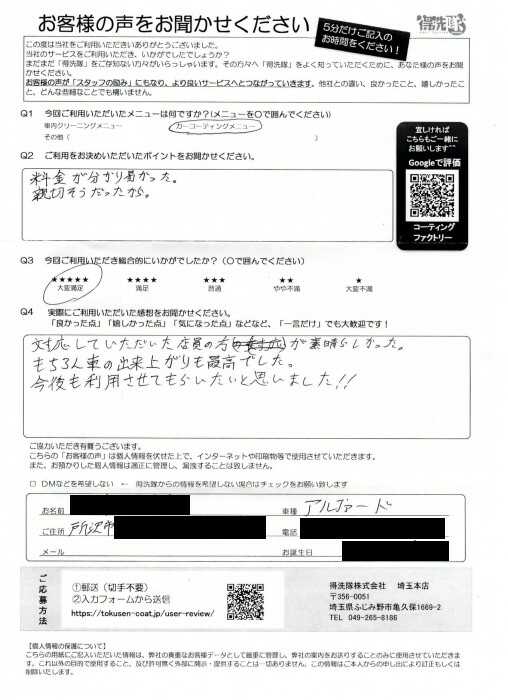 お客様の声をお聞かせください
5分だけご記入の
お時間をください！
得洗隊
この度は当社をご利用いただきありがとうございました。
当社のサービスをご利用いただき、いかがでしたでしょうか？
まだまだ「得洗隊」をご存知ない方々がいらっしゃいます。その方々へ「得洗隊」をよく知っていただくために、あなた様の声をお聞
かせください。
お客様の声が「スタッフの励み」にもなり、より良いサービスへとつながっていきます。他社との違い、良かったこと、嬉しかったこ
と、どんな些細なことでも構いません。
Q1 今回ご利用いただいたメニューは何ですか？（メニューを〇で囲んでください）
車内クリーニングメニュー カーコーティングメニュー
その他（ ）
宜しければ
こちらもご一緒に
お願いします^^
Googleで評価
コーティング
ファクトリー
Q2 ご利用をお決めいただいたポイントをお聞かせください。
料金が分かり易かった。
親切そうだったから。
Q3 今回ご利用いただき総合的にいかがでしたか？（〇で囲んでください）
★★★★★ ★★★★ ★★★ ★★ ★
大変満足 満足 普通 やや不満 大変不満
Q4 実際にご利用いただいた感想をお聞かせください。
「良かった点」「嬉しかった点」「気になった点」などなど、「一言だけ」でも大歓迎です！
対応していただいた店員の方が素晴らしかった。
もちろん車の出来上がりも最高でした。
今後も利用させてもらいたいと思いました!!
ご協力いただき有難うございます。
こちらの「お客様の声」は個人情報を伏せた上で、インターネットや印刷物等で使用させていただきます。
また、お預かりした個人情報は適正に管理し、漏洩することは致しません。
□ DMなどを希望しない ← 得洗隊からの情報を希望しない場合はチェックをお願い致します
お名前 車種 アルファード
ご住所 所沢市 電話
メール お誕生日
ご応募方法
①郵送（切手不要）
②入力フォームから送信
https://tokusen-coat.jp/user-review/
得洗隊株式会社 埼玉本店
〒356-0051
埼玉県ふじみ野市亀久保1669-2
TEL 049-265-8186
【個人情報の保護について】
こちらの用紙にご記入いただいた情報は、弊社の貴重なお客様データとして厳重に管理し、弊社の案内をお送りすることのみに使用させていただきま
す。これ以外の目的で使用すること、及び許可無く外部に開示・提供することは一切ありません。この情報はご本人からの申し出により訂正もしくは
削除いたします。